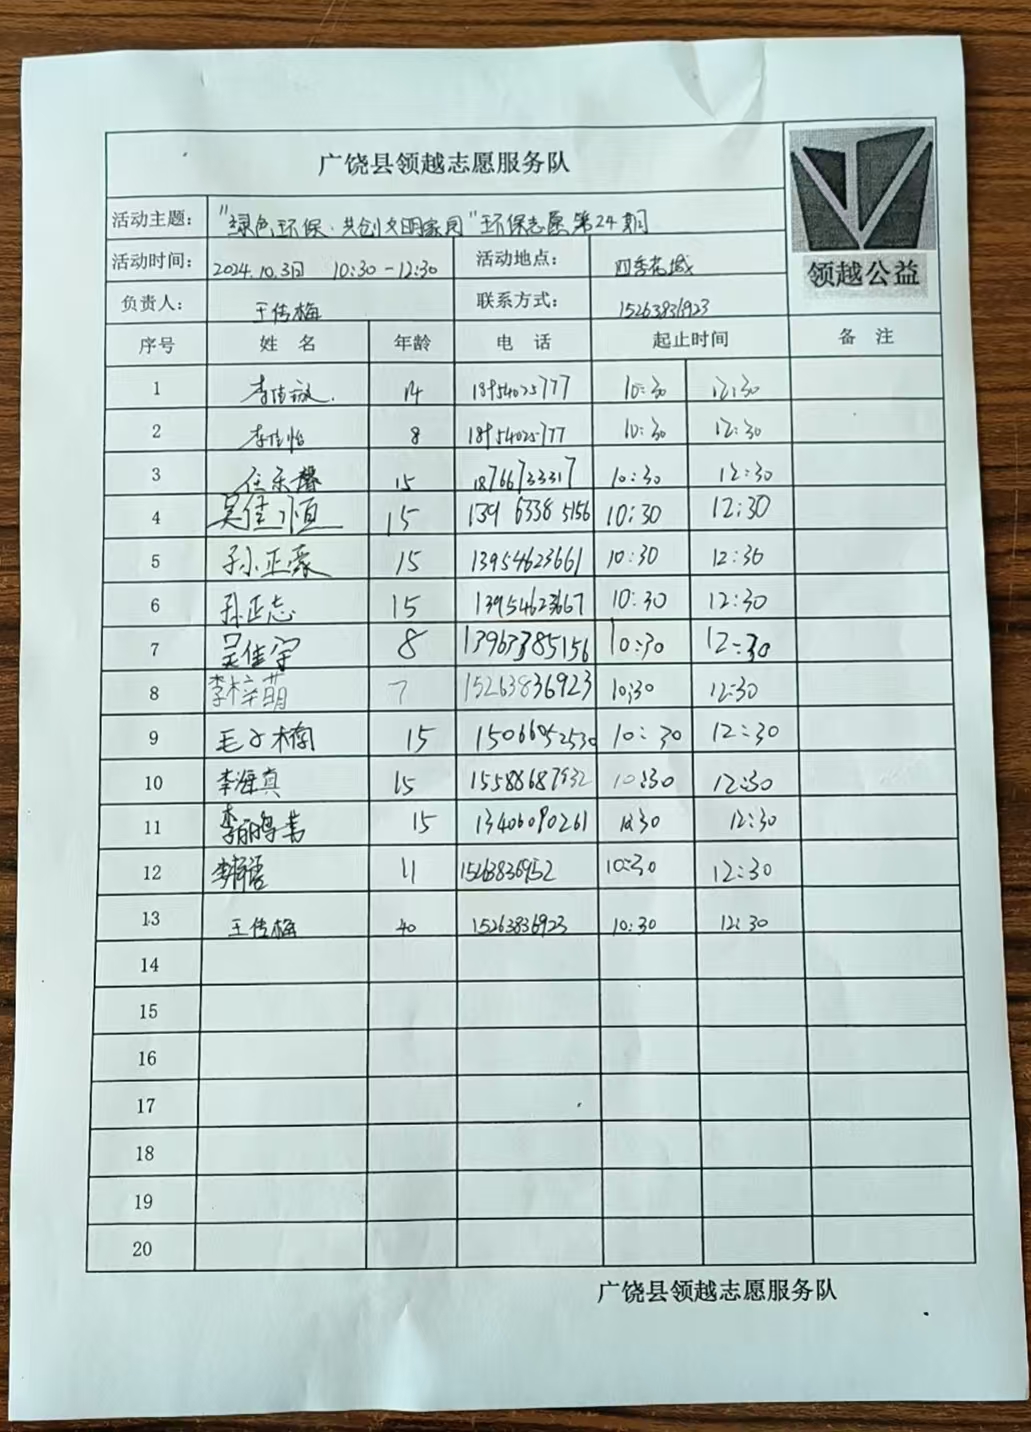 广饶县领越志愿服务队
领越公益
活动主题： "绿色环保·共创文明家园"环保志愿第24期
活动时间： 2024.10.3日 10:30-12:30 活动地点： 四季
负责人： 王传梅 联系方式： 15263836923
序号 姓名 年龄 电话 起止时间 备注
1 李佳 14 18954025777 10:30 12:30
2 李佳怡 8 18954025777 10:30 12:30
3 任乐馨 15 18766723317 10:30 12:30
4 吴佳恒 15 139 6338 5156 10:30 12:30
5 孙正豪 15 13954623661 10:30 12:30
6 孙正志 15 13954623667 10:30 12:30
7 吴佳宇 8 13963385156 10:30 12:30
8 李梓萌 7 15263836923 10:30 12:30
9 毛子楠 15 15066952530 10:30 12:30
10 李海真 15 15588687932 10:30 12:30
11 李鹏 15 13406090261 10:30 12:30
12 李 11 15263836952 10:30 12:30
13 王传梅 40 15263836923 10:30 12:30
14
15
16
17
18
19
20
广饶县领越志愿服务队